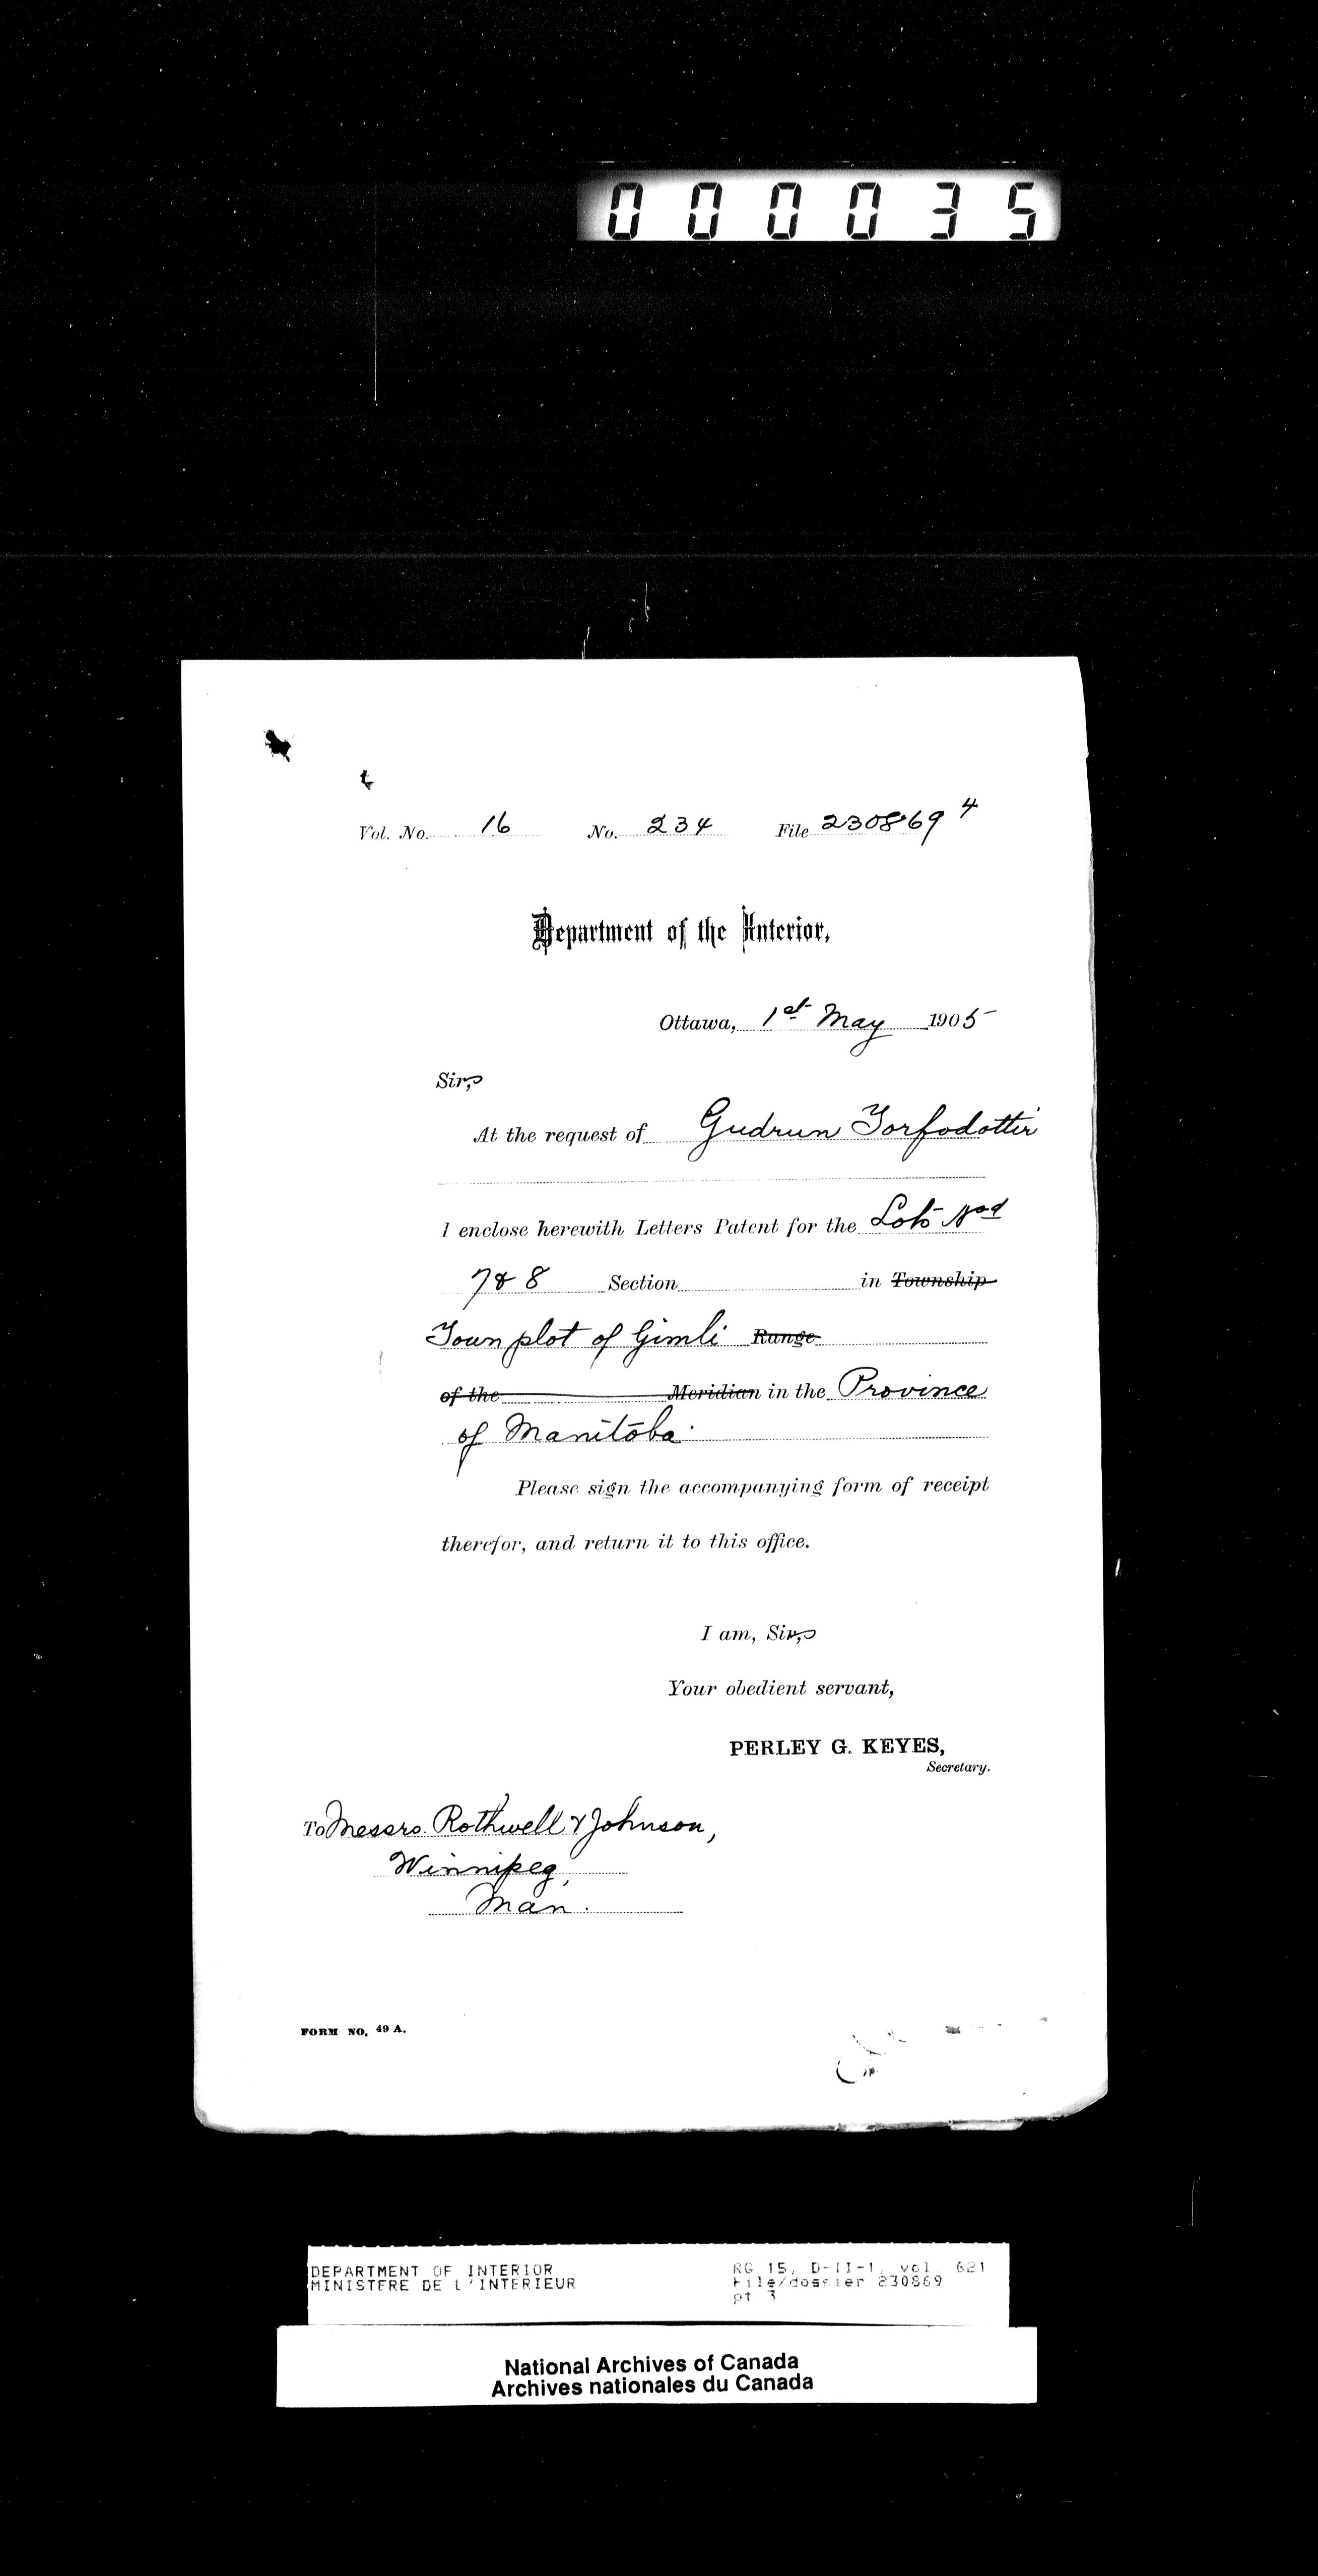 000035
Vol. No. 16 No. 234 File 230869 4
Department of the Interior,
Ottawa, 1st May 1905
Sirs
At the request of Gudrun Torfodottir
I enclose herewith Letters Patent for the Lots Nos
7 & 8 Section in Township
Town plot of Gimli Range
of the Meridian in the Province
of Manitoba.
Please sign the accompanying form of receipt
therefor, and return it to this office.
I am, Sirs
Your obedient servant,
PERLEY G. KEYES,
Secretary.
To Messrs. Rothwell & Johnson,
Winnipeg,
Man.
FORM NO. 49 A.
DEPARTMENT OF INTERIOR RG 15, D-II-1, vol. 621
MINISTERE DE L'INTERIEUR File/dossier 230869
pt 3
National Archives of Canada
Archives nationales du Canada